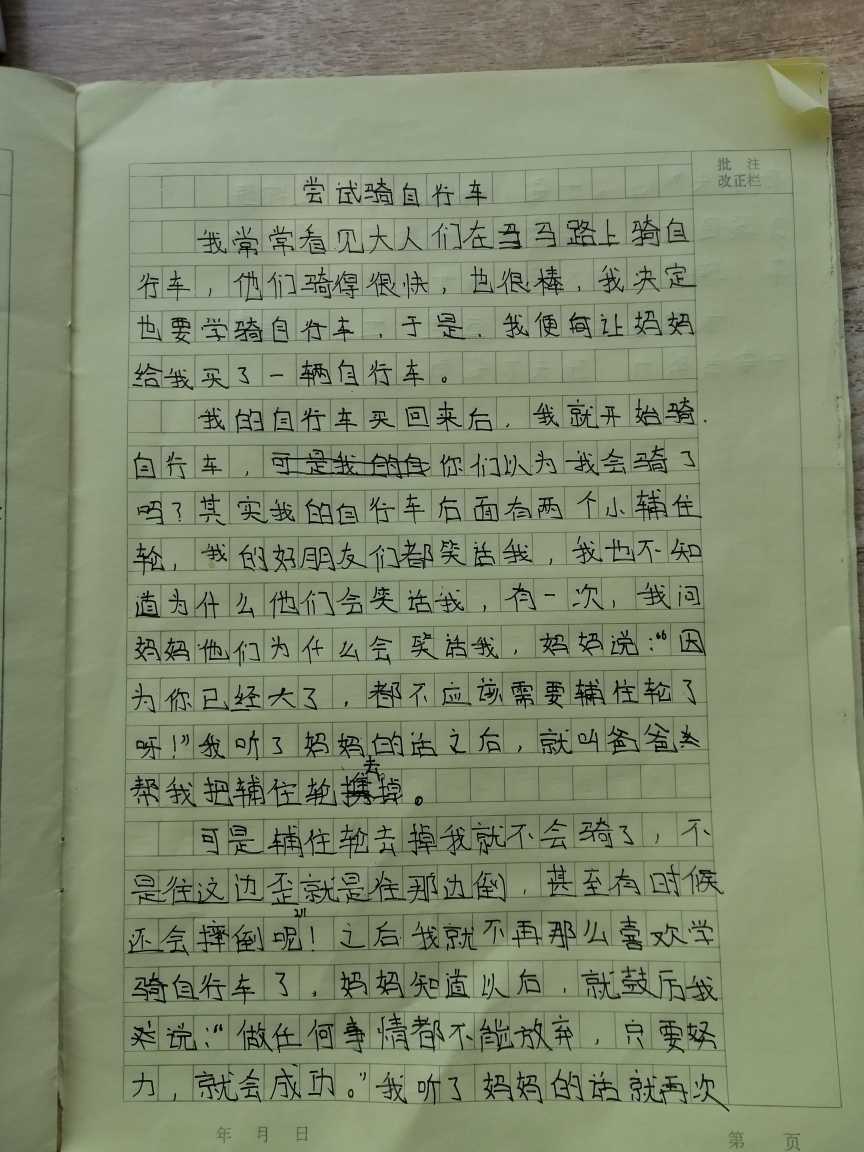 批 注
改正栏
尝试骑自行车
我常常看见大人们在马路上骑自
行车，他们骑得很快，也很棒，我决定
也要学骑自行车，于是，我便让妈妈
给我买了一辆自行车。
我的自行车买回来后，我就开始骑
自行车，可是我的自你们以为我会骑了
吗？其实我的自行车后面有两个小辅住
轮，我的好朋友们都笑话我，我也不知
道为什么他们会笑话我，有一次，我问
妈妈他们为什么会笑话我，妈妈说：“因
为你已经大了，都不应该需要辅住轮了
呀！”我听了妈妈的话之后，就叫爸爸
帮我把辅住轮去掉。
可是辅住轮去掉我就不会骑了，不
是往这边歪就是往那边倒，甚至有时候
还会摔倒呢！之后我就不再那么喜欢学
骑自行车了，妈妈知道以后，就鼓历我
说：“做任何事情都不能放弃，只要努
力，就会成功。”我听了妈妈的话就再次
年 月 日
第 页